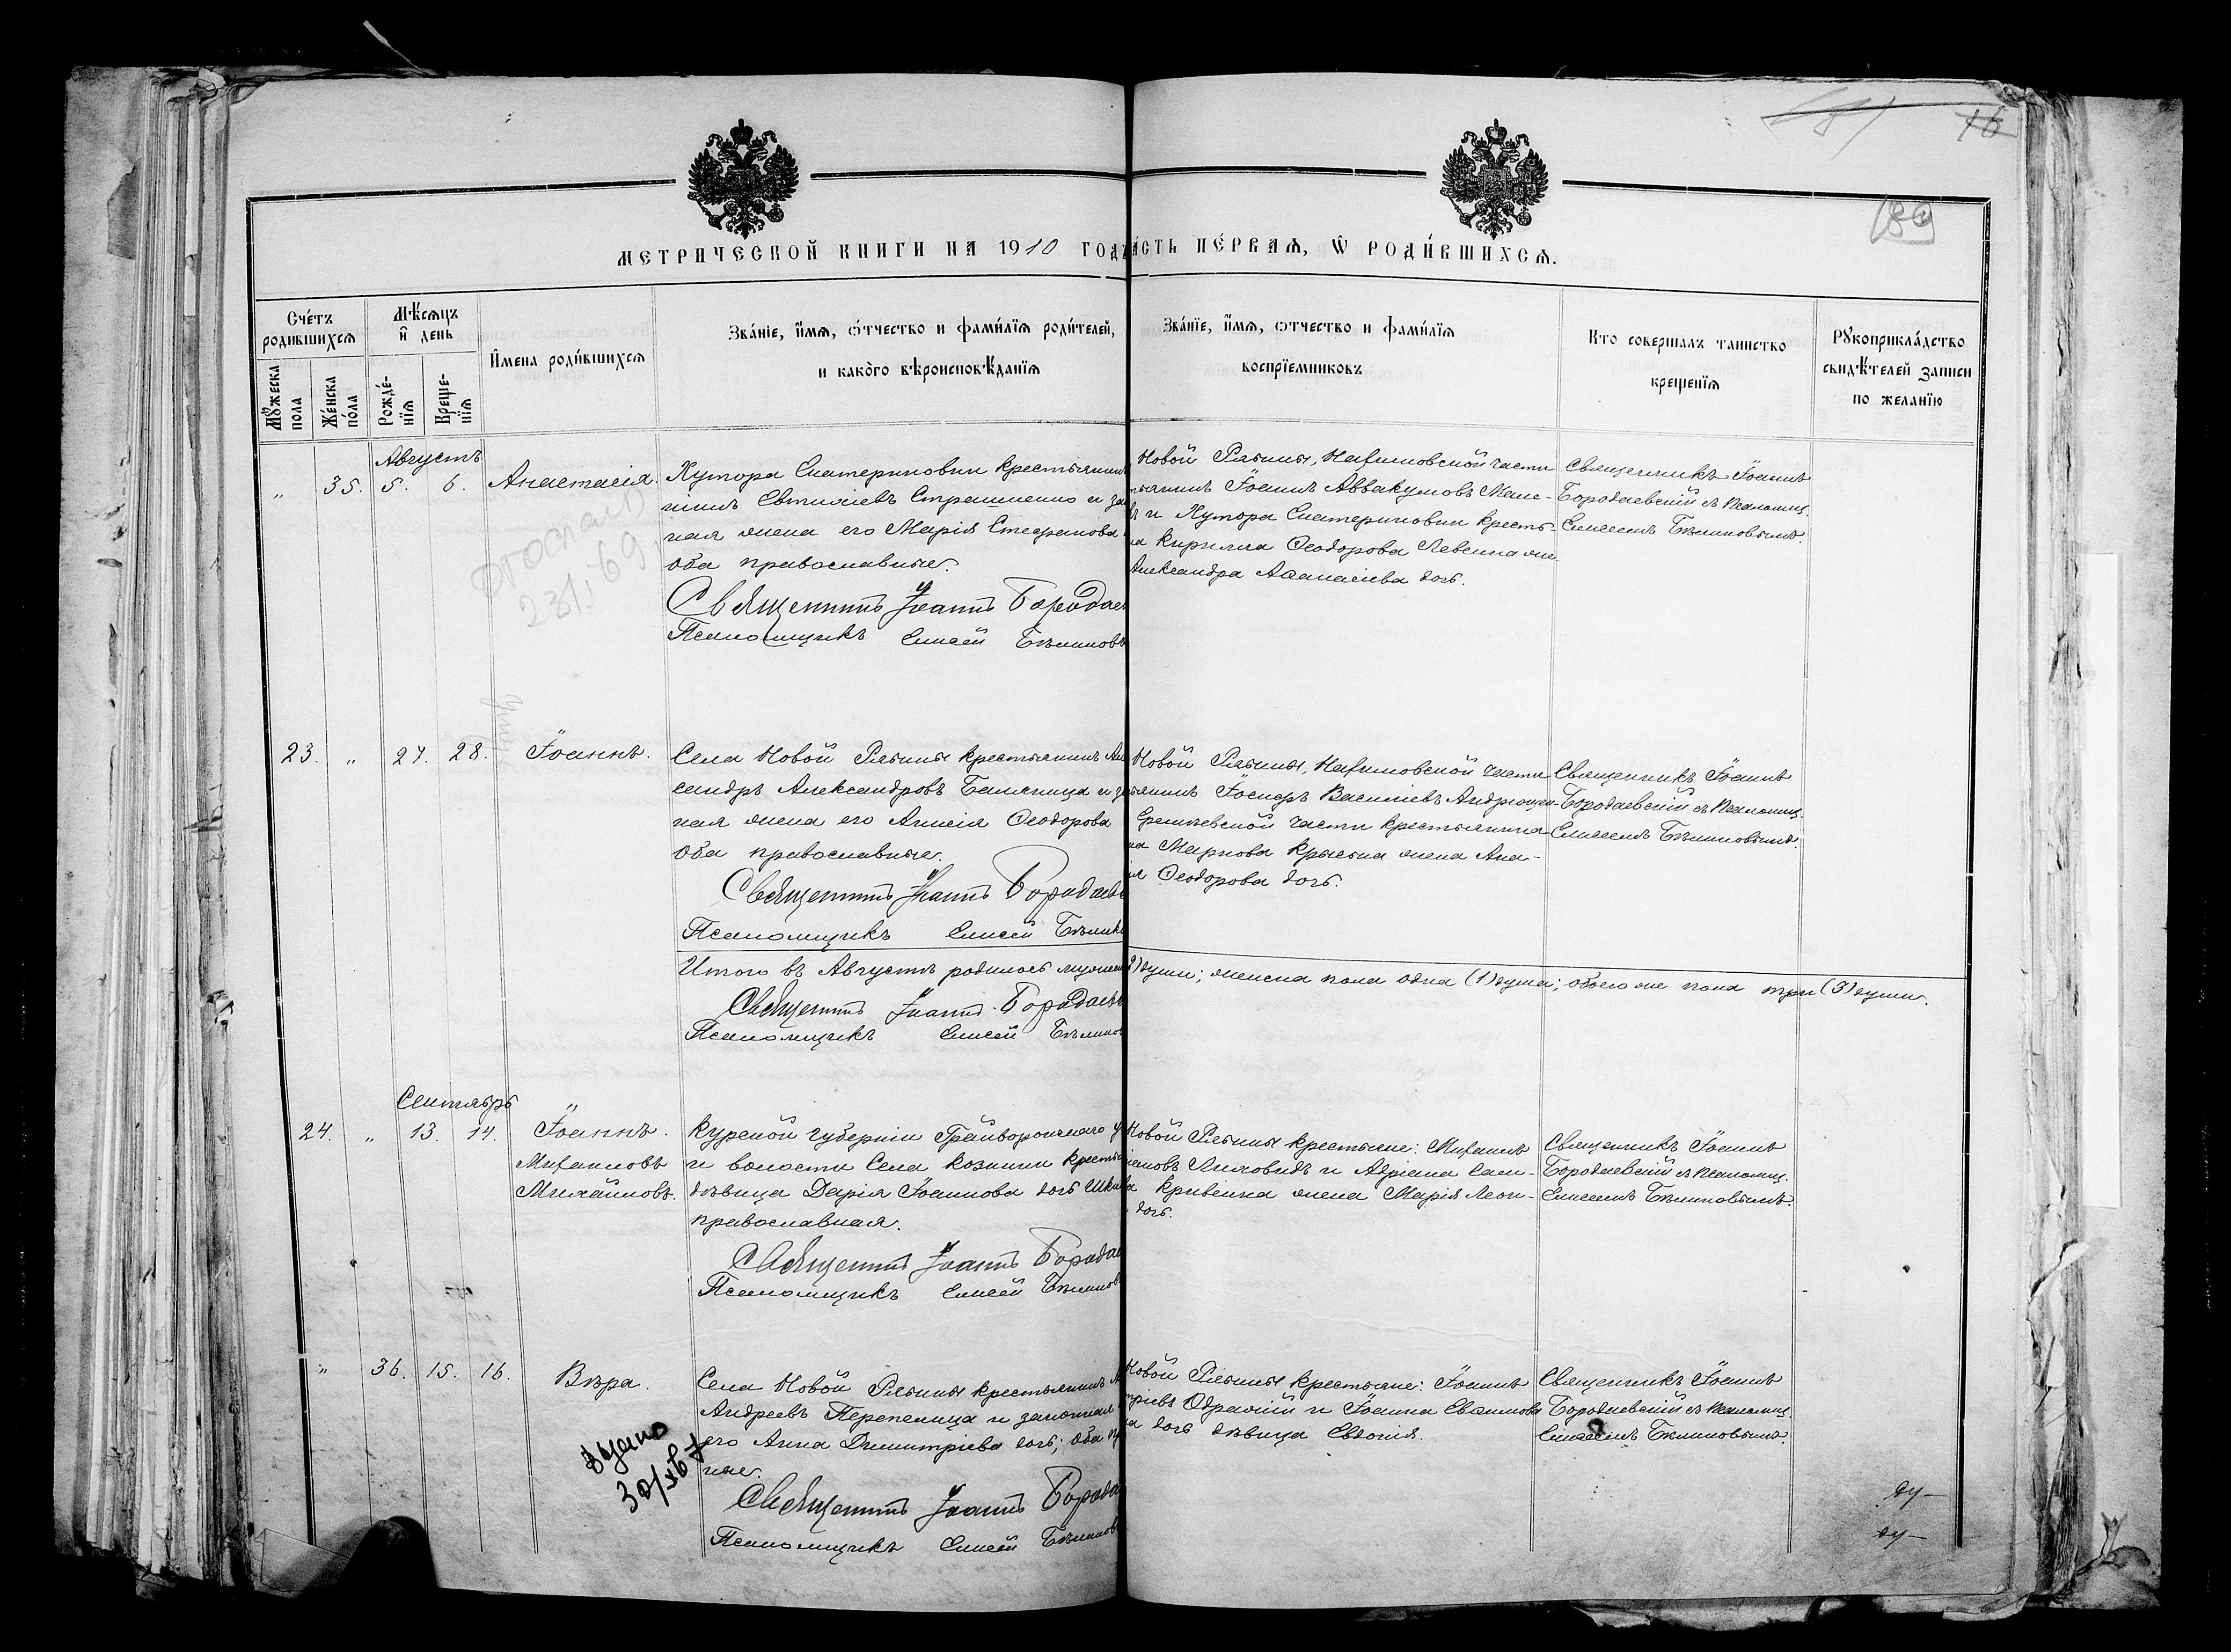 16
89
МЕТРИЧЕСКОЙ КНИГИ НА 1910 ГОДЪ
АСТЬ ПЕ́РВАѦ, Ѡ РОДИ́ВШИХСѦ.
Сче́тъ родившихсѧ
Мѣ́сѧцъ и день
Имена роди́вшихсѧ
Зва́нїе, и́мѧ, ѻ́тчество и фами́лїѧ роди́телей,
и како́го вѣроисповѣ́данїѧ
Зва́нїе, и́мѧ, ѻтчество и фами́лїѧ
воспрїемниковъ
Кто совершалъ таинство
крещенїѧ
Рꙋкоприкла́дство
свидѣ́телей записи
по желанїю
Мꙋжеска пола
Же́нска по́ла
Рожде́-нїѧ
Креще-нїѧ
Августъ
" 35. 5. 6. Анастасія.
Хутора Екатериновки крестьянин
Евтихіевъ Страшненко и за
ная жена его Марія Стефанова
оба православные.
Священникъ Іоаннъ Бородаев
Псаломщикъ Елисей Бѣликовъ
Новой Рябины, Нахимовской части
Іоаннъ Аввакумовъ
и Хутора Екатериновки кресть-
на Кирилла Ѳеодорова Левенка же
Александра Аѳанасіева дочь.
Священникъ Іоаннъ
Бородаевскій съ псаломщ.
Елисеемъ Бѣликовымъ.
23. " 27. 28. Іоаннъ.
Села Новой Рябины крестьянинъ Але
сандръ Александровъ и за
ная жена его Анисія Ѳеодорова
оба православные.
Священникъ Іоаннъ Бородаевс
Псаломщикъ Елисей Бѣлик
Новой Рябины, Нахимовской части
Іосифъ Василіевъ Андрющен-
части крестьянина
на Маркова жена Ана-
ія Ѳеодорова дочь.
Священникъ Іоаннъ
Бородаевскій съ псаломщ.
Елисеемъ Бѣликовымъ.
Итого въ Августѣ родилось мужеск
2) души; женска пола одна (1) душа; обоего же пола три (3) души.
Священникъ Іоаннъ Бородаевс
Псаломщикъ Елисей Бѣликов
Сентябрь
24. " 13. 14. Іоаннъ.
Михаиловъ
Михайловъ.
Курской губерніи Грайворонскаго у
и волости Села Козинки кресть
дѣвица Дарія Іоаннова дочь
православная.
Священникъ Іоаннъ Бородае
Псаломщикъ Елисей Бѣликовъ
Новой Рябины крестьяне: Михаилъ
и Адріана Сам-
Кривенка жена Марія Леон-
дочь.
Священникъ Іоаннъ
Бородаевскій съ псаломщ.
Елисеемъ Бѣликовымъ.
" 36. 15. 16. Вѣра.
Села Новой Рябины крестьянинъ
Андреевъ Перепелица и законная
его Анна Димитріева дочь; оба пр
ные.
Священникъ Іоаннъ Борода
Псаломщикъ Елисей Бѣликов
Новой Рябины крестьяне: Іоаннъ
тріевъ и Іоанна
на дочь дѣвица Евдокія.
Священникъ Іоаннъ
Бородаевскій съ псаломщ.
Елисеемъ Бѣликовымъ.